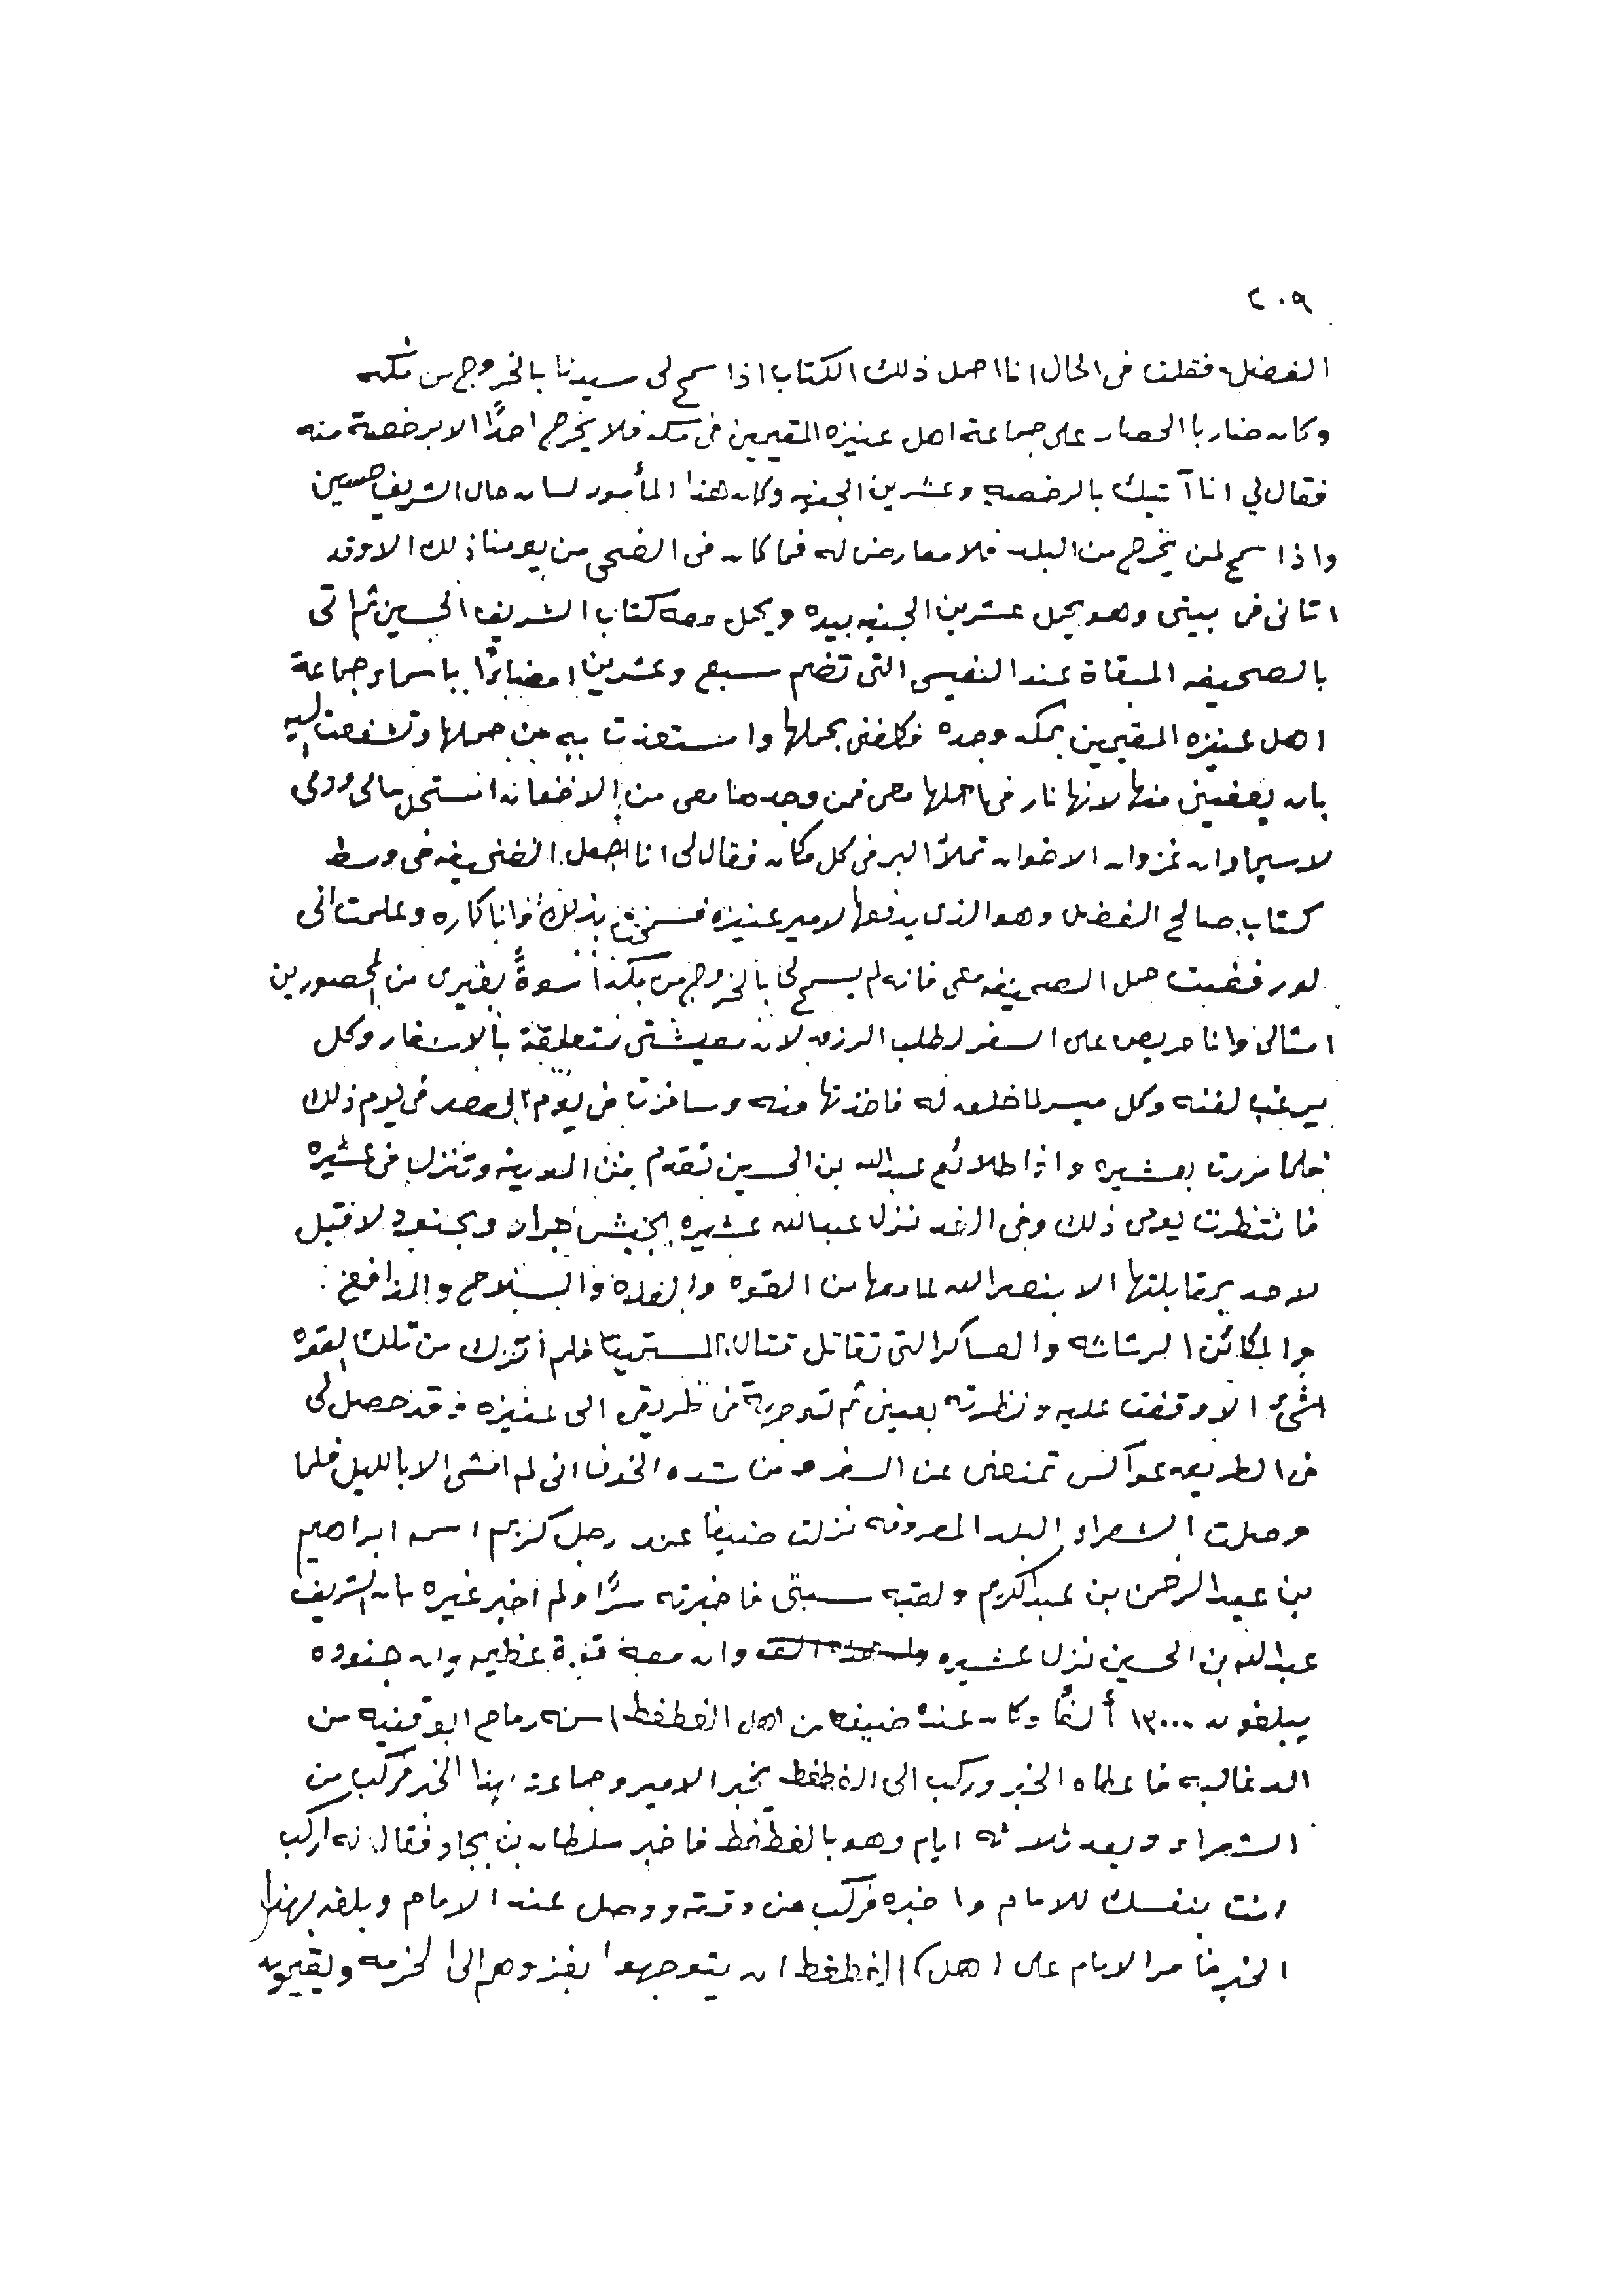 ٢٠٩
الفضل فقلت في الحال انا احمل ذلك الكتاب اذا سمح لي سيدنا بالخروج من مكه
وكان ضاربا الحصار على جماعة اهل عنيزه المقيمين في مكه فلا يخرج احدًا الا برخصة منه
فقال لي انا آتيك بالرخصه وعشرين الجنيه وكان هذا المأمور لسان حال الشريف حسين
واذا سمح لمن يخرج من البلد فلا معارض له فما كان في الضحى من يومنا ذلك الا وقد
اتاني في بيتي وهو يحمل عشرين الجنيه بيده ويحمل معه كتاب الشريف الحسين ثم اتى
بالصحيفه المبقاة عند النفيسي التي تضم سبع وعشرين امضاءًا باسماء جماعة
اهل عنيزه المقيمين بمكه وجده فكلفني بحملها واستعذت به من حملها وتشفعت اليه
بان يعفيني منها لانها نار في احملها معي فمن وجدها معي من الاخوان استحل مالي ودمي
لا سيما وان غزوان الاخوان تملأ البر في كل مكان فقال لي انا اجعل الصحيفه في وسط
كتاب صالح الفضل وهو الذي يدفعها لامير عنيزه بذلك وانا كاره وعلمت اني
لو رفضت حمل الصحيفه معي فانه لم يسمح لي بالخروج من مكه أسوةً بغيري من المحصورين
امثالي وانا حريص على السفر لطلب الرزق لان معيشتي متعلقة بالاسفار وكل
يرغب لفنه وكل ميسر لما خلق له فاخذتها منه وسافرت في يوم العصر في يوم ذلك
فلما مررت بعشيره واذا طلائع عبدالله بن الحسين تقدم من المدينه وتنزل في عشيره
فانتظرت يومي ذلك وفي الغد نزل عبدالله عشيره بجيش جرار وبجنود لا قبل
لاحد بمقابلتها الا بنصر الله لما معها من القوه والسلاح والمدافع
والمكائن الرشاشه والعساكر التي تقاتل قتال المستميت فلم أترك من تلك القوه
شيء الا وقفت عليه ونظرته بعيني ثم توجهت في طريقي الى عنيزه وقد حصل لي
في الطريق عواكس تمنعني عن السفر ومن شدة الخوف اني لم امشي الا بالليل فلما
وصلت الشعراء البلد المعروفه نزلت ضيفا عند رجل كريم اسمه ابراهيم
بن عبدالرحمن بن عبدالكريم ولقبه سبتي فاخبرته سرًا ولم اخبر غيره بان الشريف
عبدالله بن الحسين نزل عشيره وان معه قوة عظيمه وان جنوده
يبلغون ١٣٠٠٠ ألفًا وكان عنده ضيف من اهل الغطغط اسمه رماح ابو قنيه من
الدغالبه فاعطاه الخبر وركب الى الغطغط يخبر الامير وجماعته بهذا الخبر فركب من
الشعراء وبعد ثلاثه ايام وهو بالغطغط فاخبر سلطان بن بجاد فقال له اركب
انت بنفسك للامام واخبره فركب من وقته ووصل عند الامام وبلغه بهذا
الخبر فامر الامام على اهل الغطغط ان يتوجهوا بغزوهم الى الخرمه ويقيمون